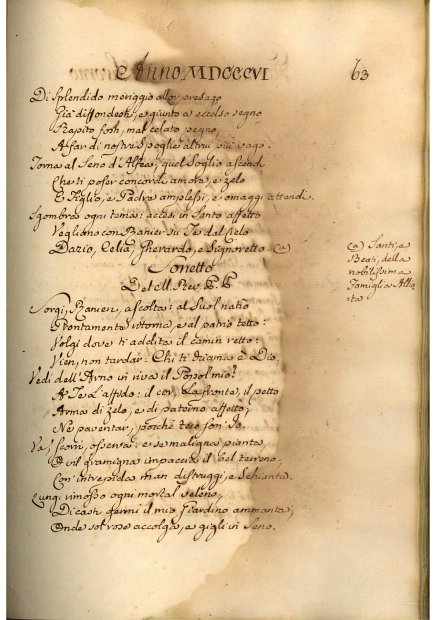 Anno MDCCCVI
63
Di Splendido meriggio allor presago
Già diffondesti, e giunto a eccelso segno
Rapito fosti, mal celato pegno,
A far di nostre Spoglie altrui più vago.
Torna al Seno d'Alfea; quel Soglio ascendi
Che ti poser concordi amore, e zelo
E Figlio, e Padre amplessi, e omaggi attendi.
Sgombra ogni tema: accesi in Santo affetto
Vegliono con Ranier su Te dal Cielo
Dazio, Celia, Gherardo, e Signoretto. (a)
(a) Santi, e
Beati, della
nobilissima
Famiglia Allia
ta
Sonetto
Del M. Rev. P. P.
Sorgi, Ranieri, ascolta: al Suol natio
Prontamente ritorna, e al patrio tetto:
Volgi dove ti addita il camin retto:
Vien, non tardar: Chi ti chiama è Dio.
Vedi dell'Arno in riva il Popol mio?
A Te l'affido: il cor, la fronte, il petto
Arma di zelo, e di paterno affetto;
Ne paventar, poichè teco son' Io.
Va, scorri, osserva: e se maligna pianta,
O vil gramigna impaccia il bel terreno,
Con intrepida man distruggi, e Schianta.
Lungi rimosso ogni mortal veleno,
Di casti germi il mio Giardino ammanta,
Onde sol rose accolga, e gigli in Seno.